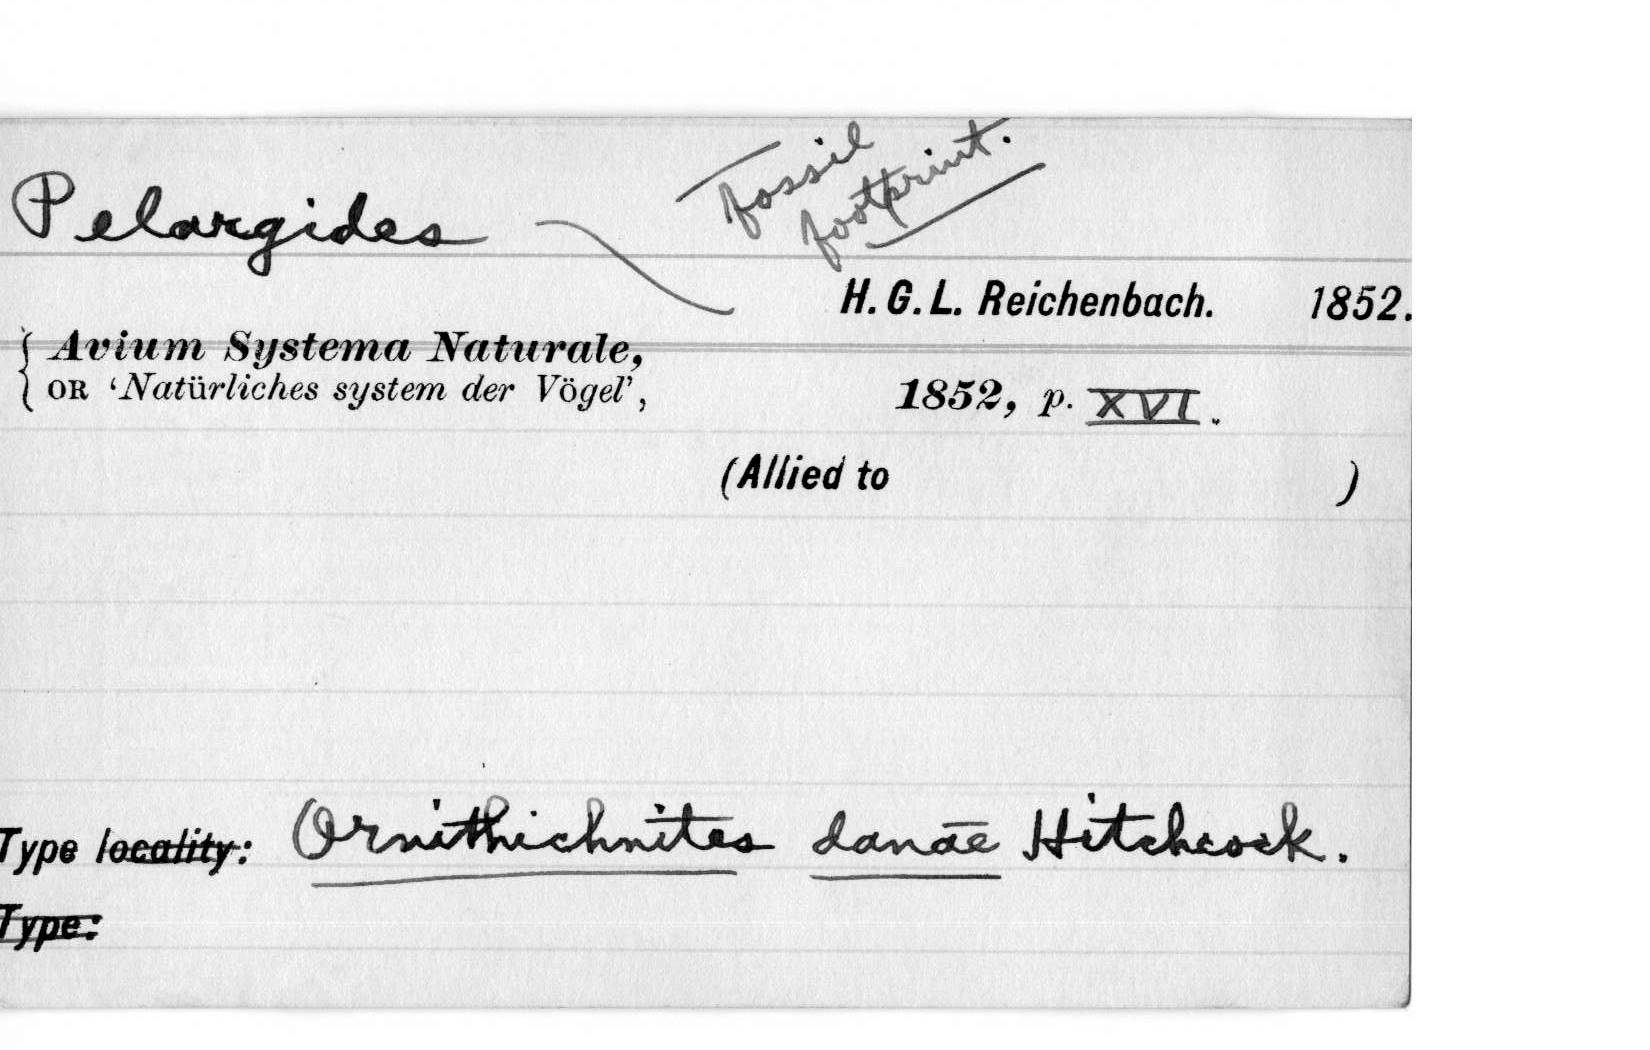 Fossil
footprint.
Pelargides
H. G. L. Reichenbach. 1852.
Avium Systema Naturale,
OR 'Natürliches system der Vögel', 1852, p. XVI.
(Allied to )
Type locality: Ornithichnites danae Hitchcock.
Type: